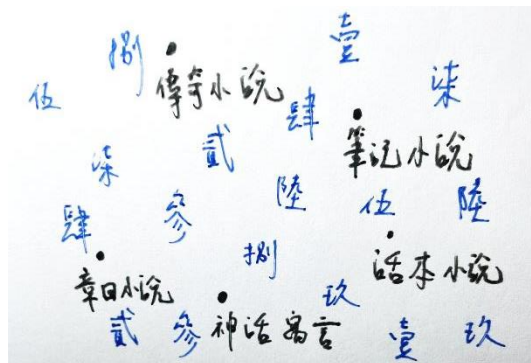 捌 壹
伍 傳奇小说 柒
肆
貳 筆记小说
柒
陸 伍 陸
肆 參
捌 话本小说
章回小说 玖
貳 參 神话寓言 壹 玖